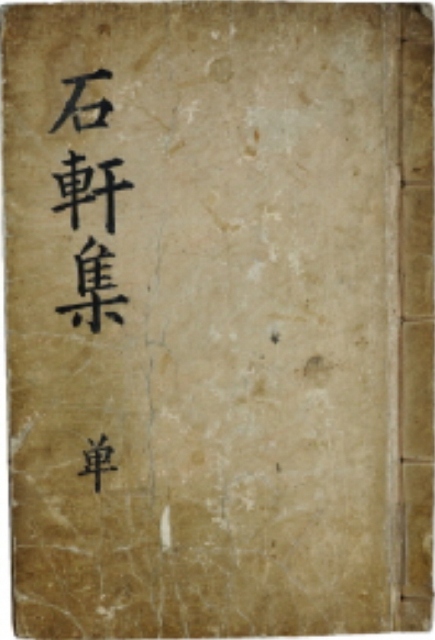 石軒集
单